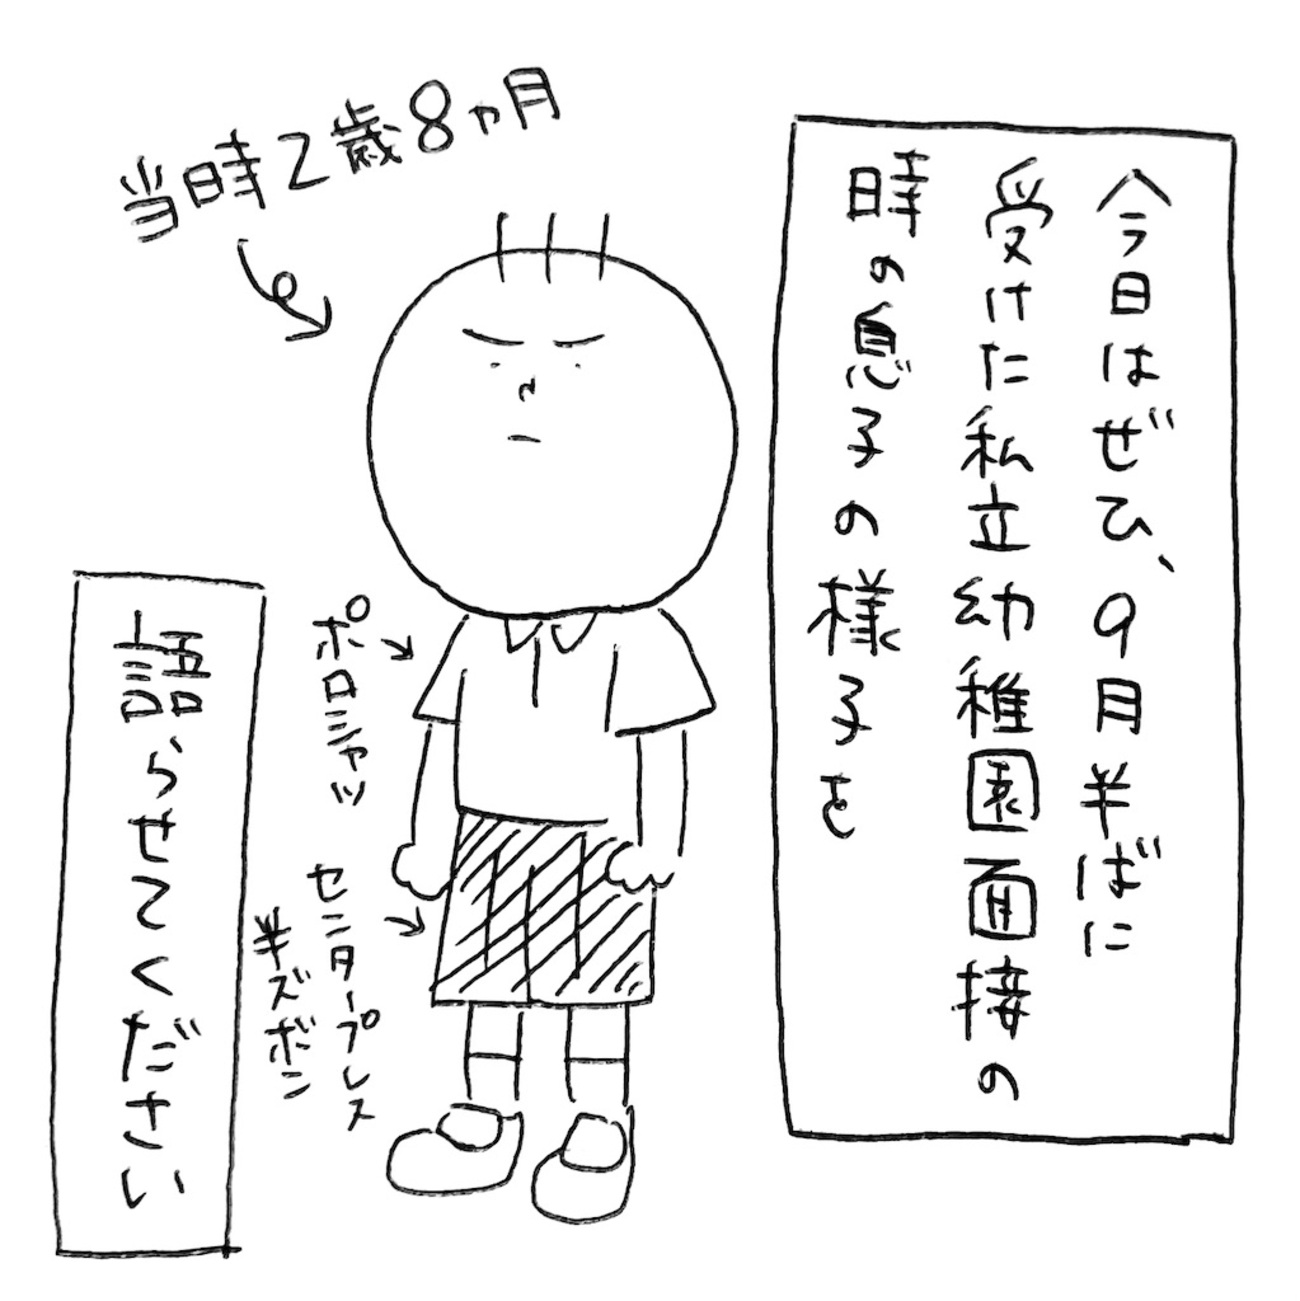 今日はぜひ、9月半ばに
受けた私立幼稚園面接の
時の息子の様子を
当時2歳8ヵ月
ポロシャツ
センタープレス
半ズボン
語らせてください